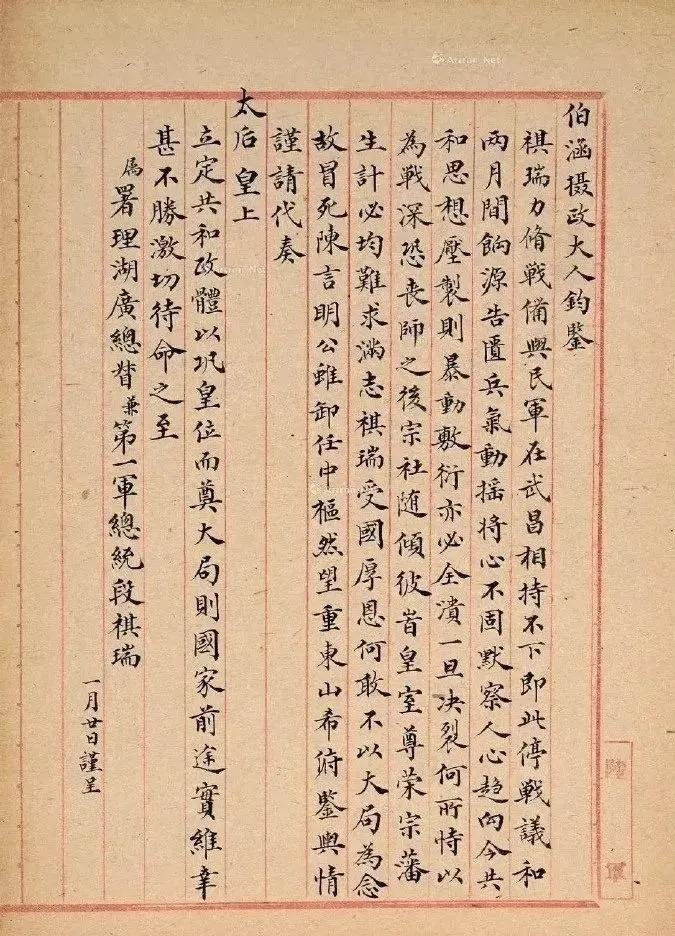 伯涵摄政大人鈞鑒
祺瑞力脩戰備與民軍在武昌相持不下即此停戰議和
两月間餉源告匱兵氣動摇将心不固默察人心趋向今共
和思想壓製則暴動敷衍亦必全潰一旦决裂何所恃以
為戰深恐喪師之後宗社随傾彼旹皇室尊荣宗藩
生計必均難求滿志祺瑞受國厚恩何敢不以大局為念
故冒死陳言明公雖卸任中樞然望重東山希㳯鑒輿情
謹請代奏
太后 皇上
立定共和政體以巩皇位而奠大局則國家前途實維幸
甚不勝激切待命之至
属署理湖廣總督兼第一軍總統段祺瑞
一月廿日謹呈
Artron.Net